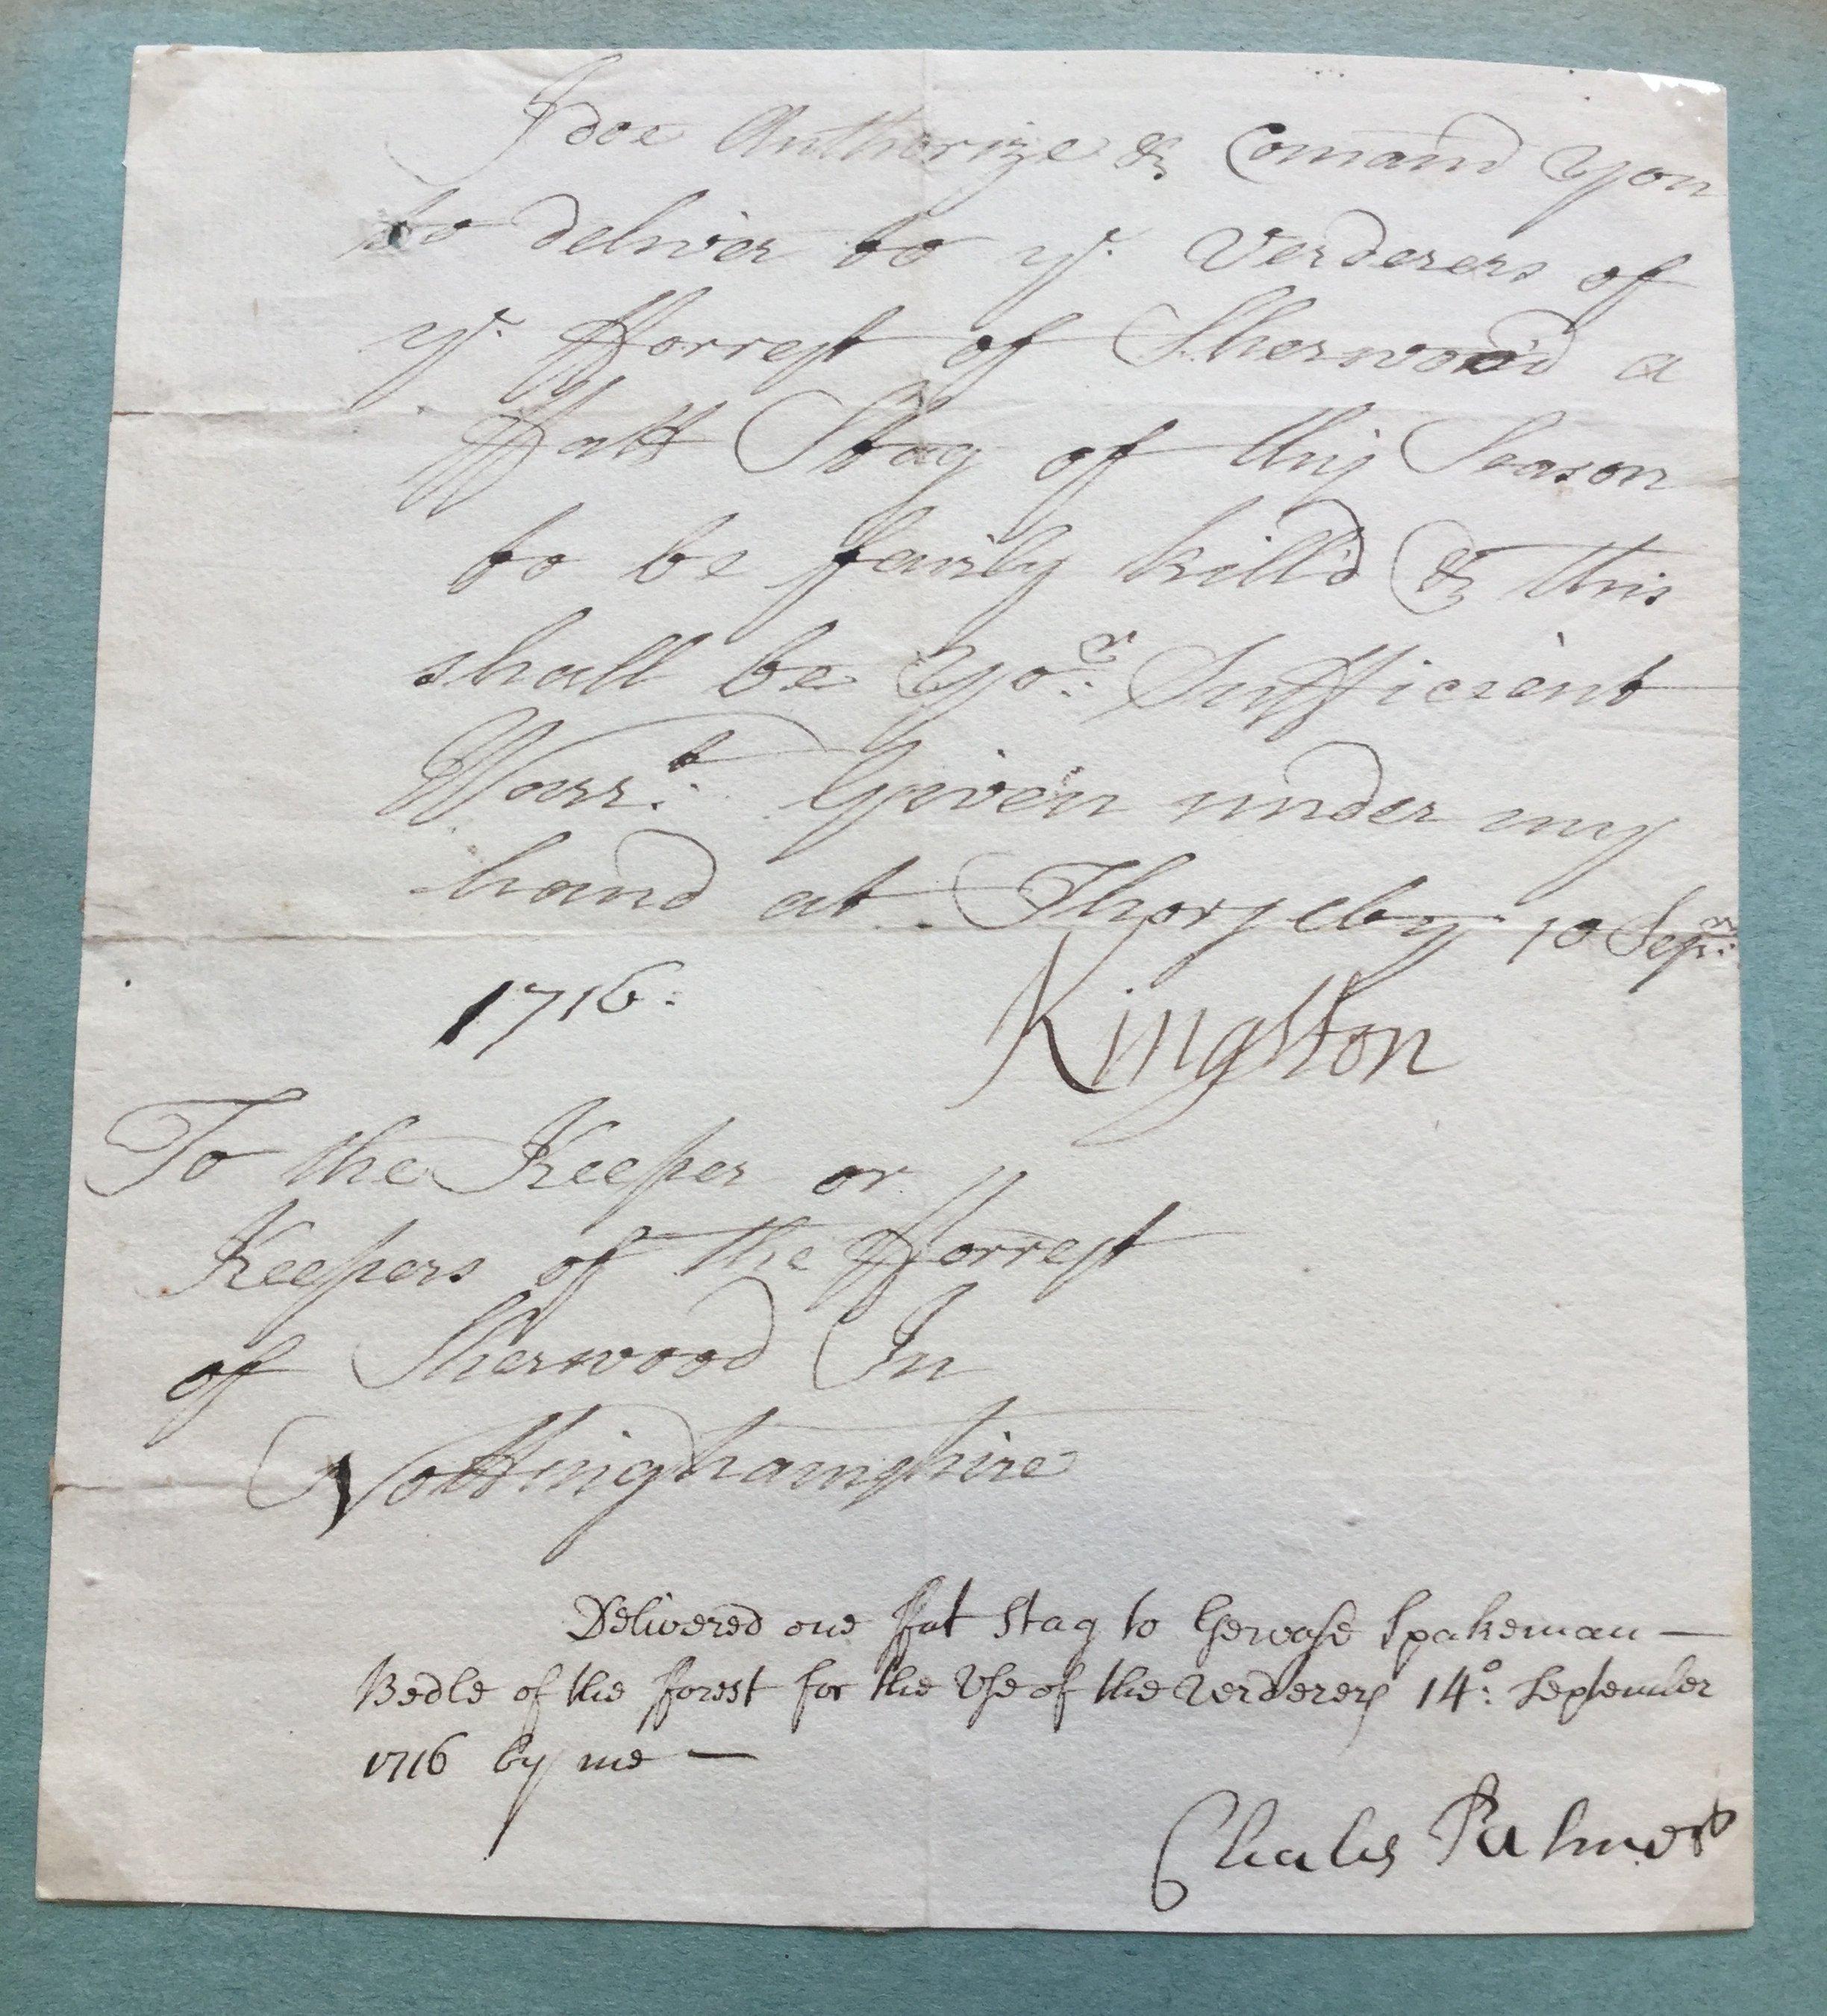 I doe Authorize & Comand you
to deliver to ye. Verderers of
ye. fforrest of Sherwood a
ffatt Stag of this Season
to be fairly kill'd & this
shall be yor: Sufficient
Warrt: Given under my
hand at Thorseby 10 Sepr:
1716:
Kingston
To the Keeper or
Keepers of the fforrest
of Sherwood In
Nottinghamshire
Delivered one ffat Stag to Gervase Spakeman —
Bedle of the fforest for the Use of the Verderers 14o: September
1716 by me —
Charles Palmer